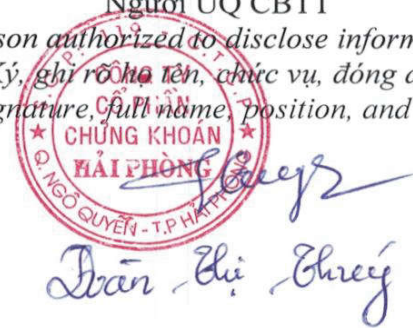 Người UQ CBTT
son authorized to disclose inform
Ký, ghi rõ họ tên, chức vụ, đóng d
gnature, full name, position, and
CÔNG TY
CỔ PHẦN
CHỨNG KHOÁN
HẢI PHÒNG
Q. NGÔ QUYỀN - T.P HẢI PHÒNG
Đoàn Thị Thuý